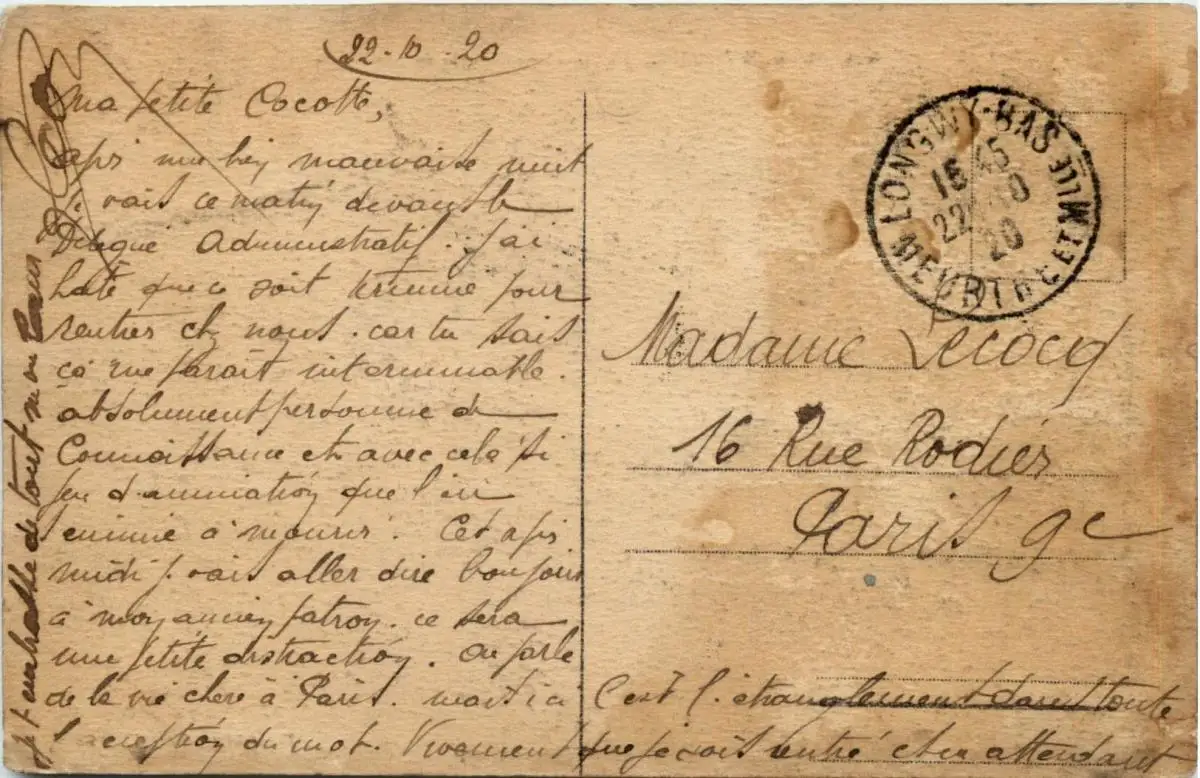 22-10-20
Ma petite Cocotte,
après une bien mauvaise nuit
je vais ce matin devant le
Délégué Administratif. J'ai
hate que ce soit terminé pour
rentrer chez nous. car tu sais
ça me parait interminable.
absolument personne de
Connaissance et avec cela si
peu d'animation que l'on
s'ennuie à mourir. Cet après
midi je vais aller dire bonjour
à mon ancien patron. ce sera
une petite distraction. On parle
de la vie chère à Paris. mais ici
C'est l'étranglement dans toute
l'acception du mot. Vivement
que je sois rentré chez attendant
je t'embrasse de tout mon Coeur
LONGWY-BAS
16 45
22 10
20
MEURTHE ET MLLE
Madame Lecocq
16 Rue Rodier
Paris 9e